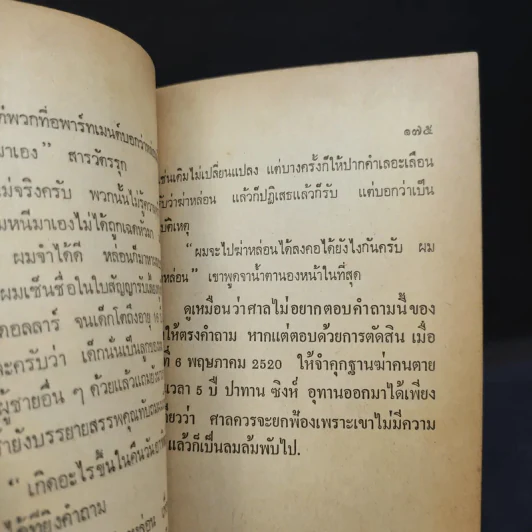 พวกที่อพาร์ทเมนต์บอกว่า
มาเอง" สารวัตรรุก
ไม่จริงครับ พวกนั้นไม่รู้
หนีมาเองไม่ได้ถูกเฉดหัวมา
ผมจำได้ดี หล่อนก็มา
ผมเซ็นชื่อในใบสัญญารับเลี้ยง
ดอลลาร์ จนเด็กโตถึงอายุ
ครับว่า เด็กนั่นเป็นลูกของ
ผู้ชายอื่น ๆ ด้วยแล้วแถม
ยังบรรยายสรรพคุณ
"เกิดอะไรขึ้นในคืนวัน
ที่ยิงคำถาม
๑๗๕
เช่นเดิมไม่เปลี่ยนแปลง แต่บางครั้งก็ให้ปากคำเลอะเลือน
ว่าฆ่าหล่อน แล้วก็ปฏิเสธแล้วก็รับ แต่บอกว่าเป็น
บัติเหตุ
"ผมจะไปฆ่าหล่อนได้ลงคอได้ยังไงกันครับ ผม
หล่อน" เขาพูดจาน้ำตานองหน้าในที่สุด
ดูเหมือนว่าศาลไม่อยากตอบคำถามนี้ของ
ให้ตรงคำถาม หากแต่ตอบด้วยการตัดสิน เมื่อ
ที่ 6 พฤษภาคม 2520 ให้จำคุกฐานฆ่าคนตาย
เวลา 5 ปี ปาทาน ซิงห์ อุทานออกมาได้เพียง
ว่า ศาลควรจะยกฟ้องเพราะเขาไม่มีความ
แล้วก็เป็นลมล้มพับไป.